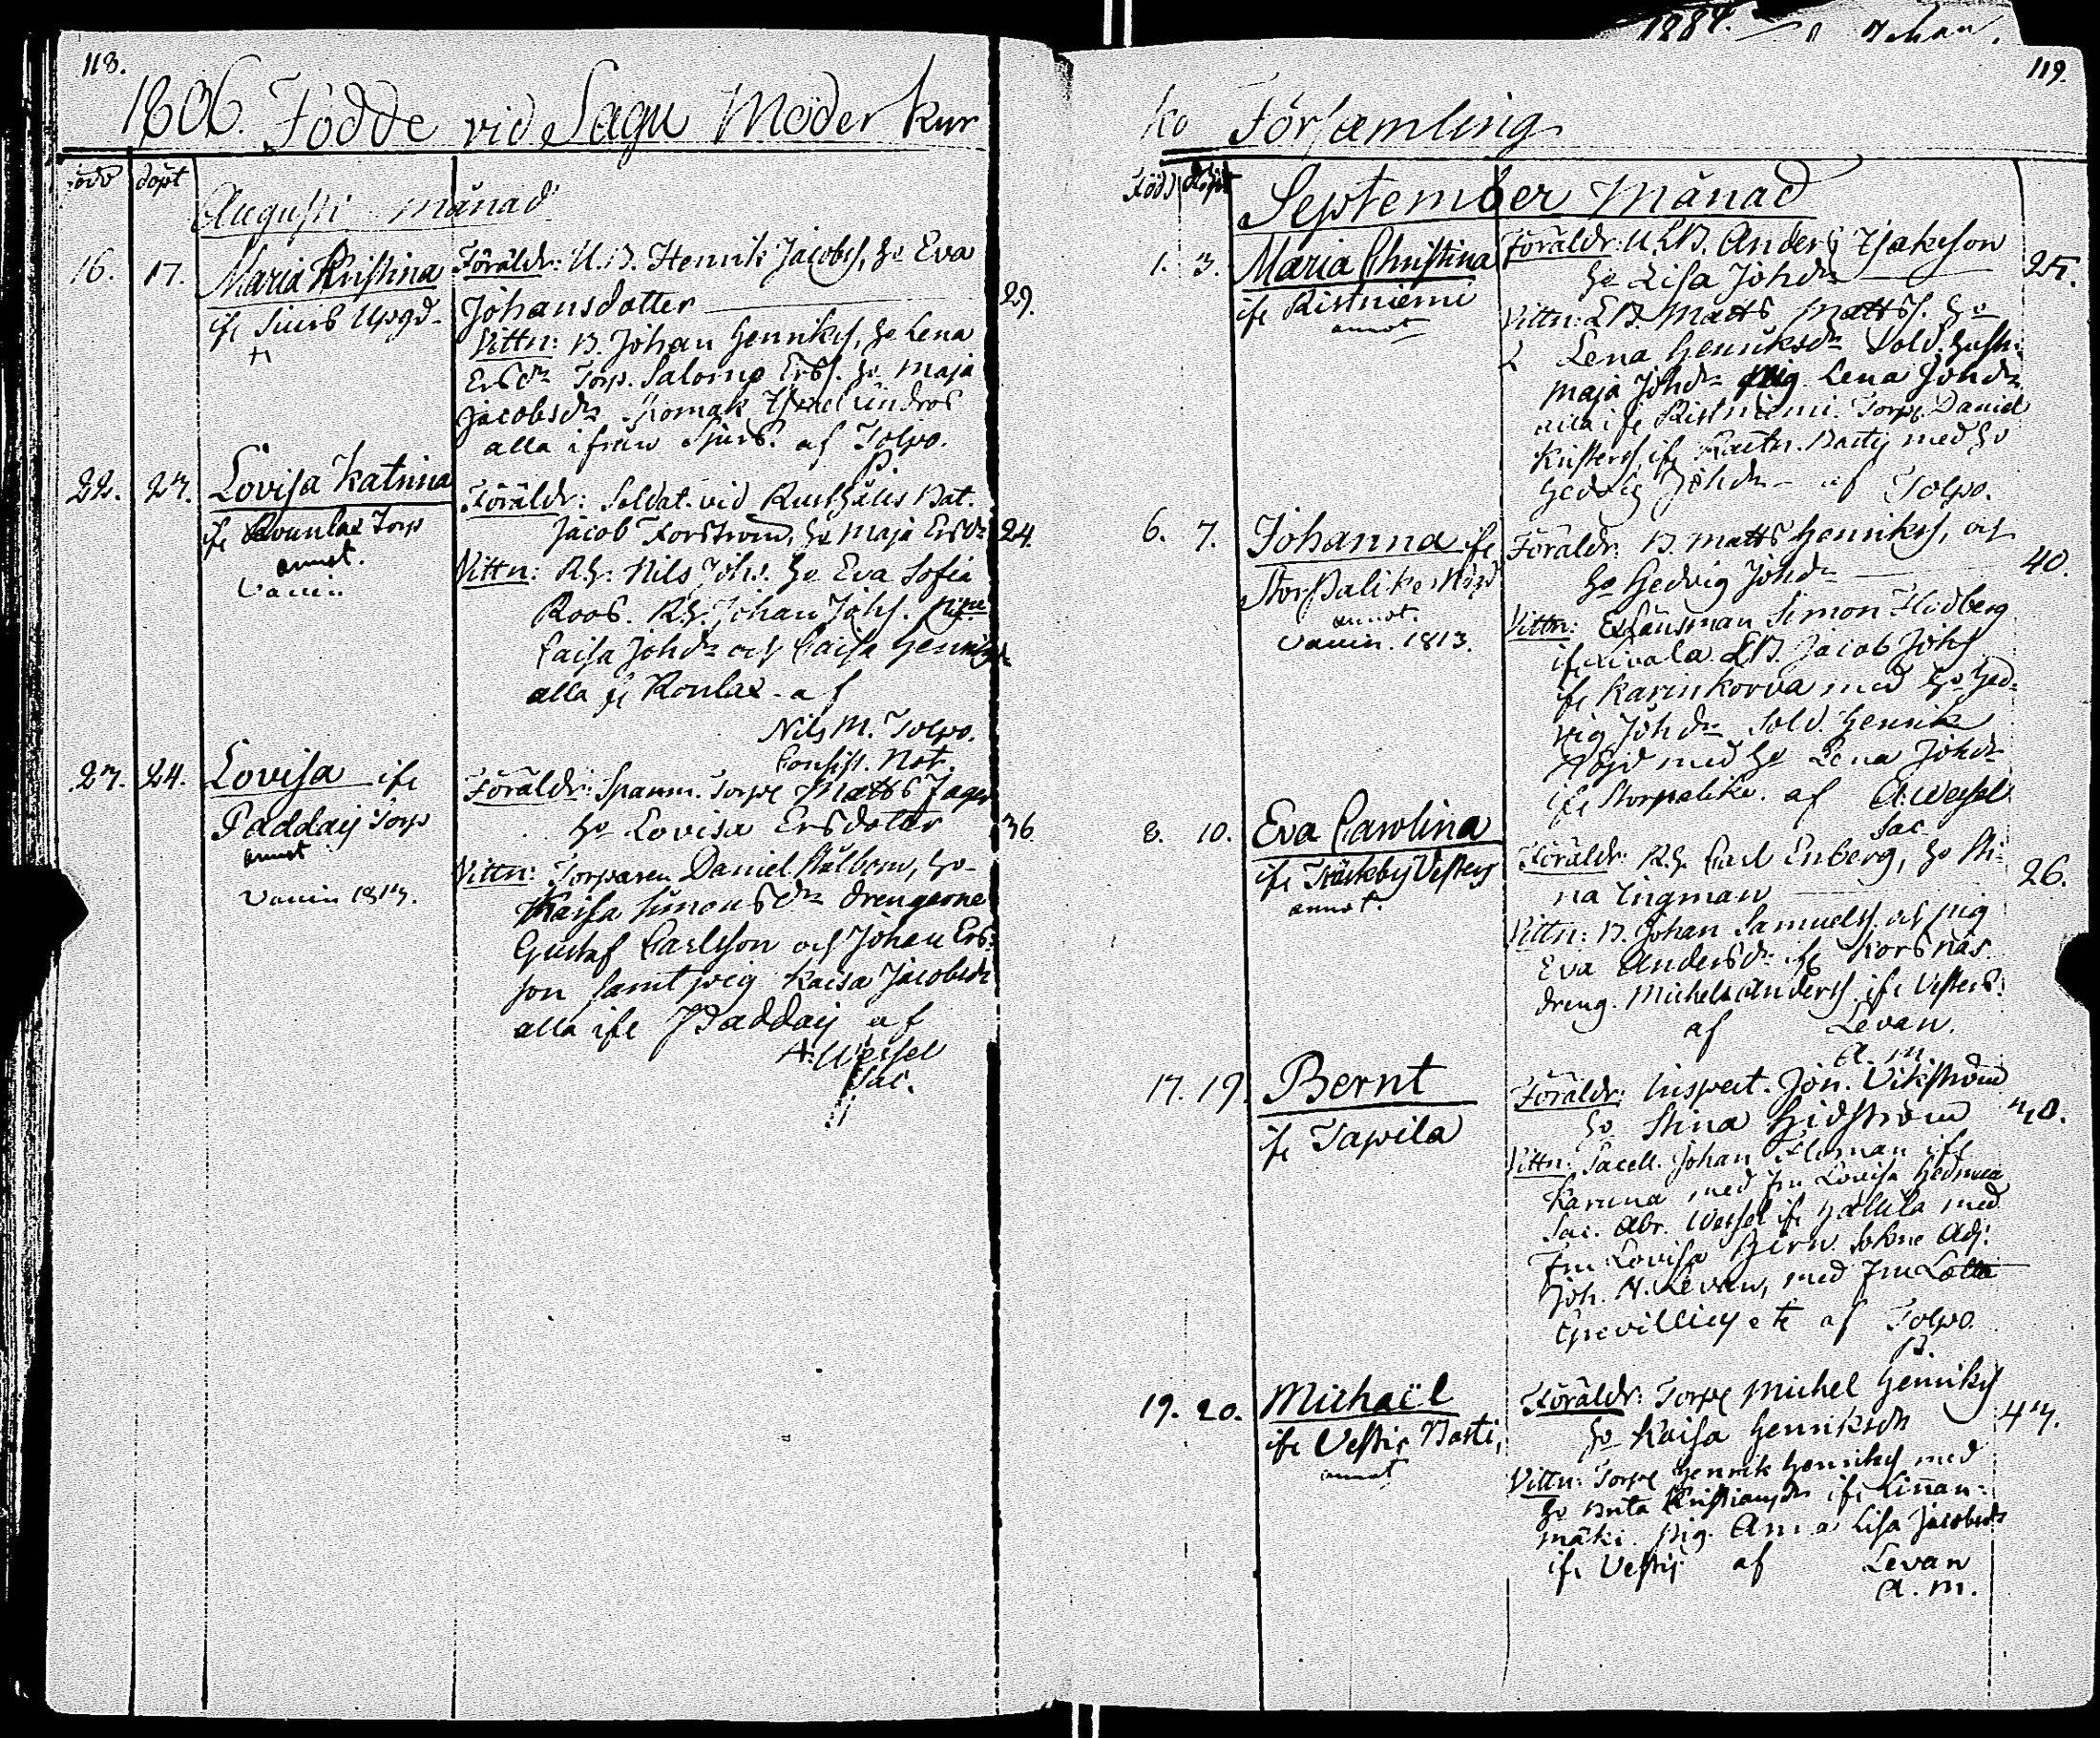 118.
1806. Födde vid Sagu Moder kyr
född döpt
Augusti månad
16. 17. Maria Kristina
ifr Siuis Upgd
Föräldr: U.B. Henrik Jacobss, ho Eva
Johansdotter 29.
Vittn: B. Johan Henrikss, ho Lena
Ersdr Torp. Salomo Erss. ho Maja
Jacobsdr
alla ifrån af Tolpo.
P.
22. 23. Lovisa Katrina
ifr Torp
annot.
Föräldr: Soldat vid Rusthålls Bat.
Jacob Forström, ho Maja Ersdr 24.
Vittn: R.h. Nils Johs. ho Eva Sofia
Roos. R.h. Johan Johs. pig.
Caisa Johdr och Caisa Henriksd
alla fr Konlax. af
Nils M. Tolpo.
Consist. Not.
23. 24. Lovisa ifr
Paddais Torp
annot
1813.
Föräldr: Spanm. Torpe Matts Jager
ho Lovisa Ersdoter 36.
Vittn: Torparen Daniel Stålbom, ho
Kaisa Simonsdr drengarne
Gustaf Carlsson och Johan Ers:
son samt pig Kaisa Jacobsdr
alla ifr Paddais af
A. Wessel
Sac.
119.
ko Församling
Född döpt
September Månad
1. 3. Maria Christina
ifr Ristniemi
annot
Föräldr: U.L.B. Anders Isakson
ho Lisa Johdr 25.
Vittn: L.B. Matts Mattss. ho
Lena Henriksdr Sold. hustr:
Maja Johdr pig Lena Johdr
alla ifr Ristniemi. Torpe Daniel
Kristerss, ifr med ho
Hedvig Johdr af Tolpo.
6. 7. Johanna ifr
Storpalike
annot.
1813.
Föräldr: B. Matts Henrikss, och
ho Hedvig Johdr 40.
Vittn: Simon Flodberg
ifr Livala L.B. Jacob Johs
ifr Karinkorva med ho Hed:
vig Johdr Sold. Henrik
Nöjd med ho Lena Johdr
ifr Storpalike. af A. Wessel
Sac.
8. 10. Eva Carolina
ifr Träskby
annot.
Föräldr: R.h. Carl Enberg, ho Sti:
na Lingman 26.
Vittn: B. Johan Samuelss och pig
Eva Andersdr ifr Korsnäs.
dreng. Michel Anderss ifr
af Levan.
A. M.
17. 19. Bernt
ifr Tapila
Föräldr: Inspect. Joh. Vikström
ho Stina Hidström 40.
Vittn: Sacell. Johan ifr
Karuna med Fru Lovisa
Sac. Abr. Wessel ifr med
Fru Lovisa Adj.
Joh. N. Levan, med Fru Lotta
af Tolpo
P.
19. 20. Michaël
ifr
annot
Föräldr: Torpe Michel Henrikss
ho Kaisa Henriksdr 43.
Vittn: Torpe Henrik Henrikss med
ho Brita Kristiansdr ifr Linnan:
mäki. Pig. Anna Lisa Jacobsdr
ifr af Levan
A. M.